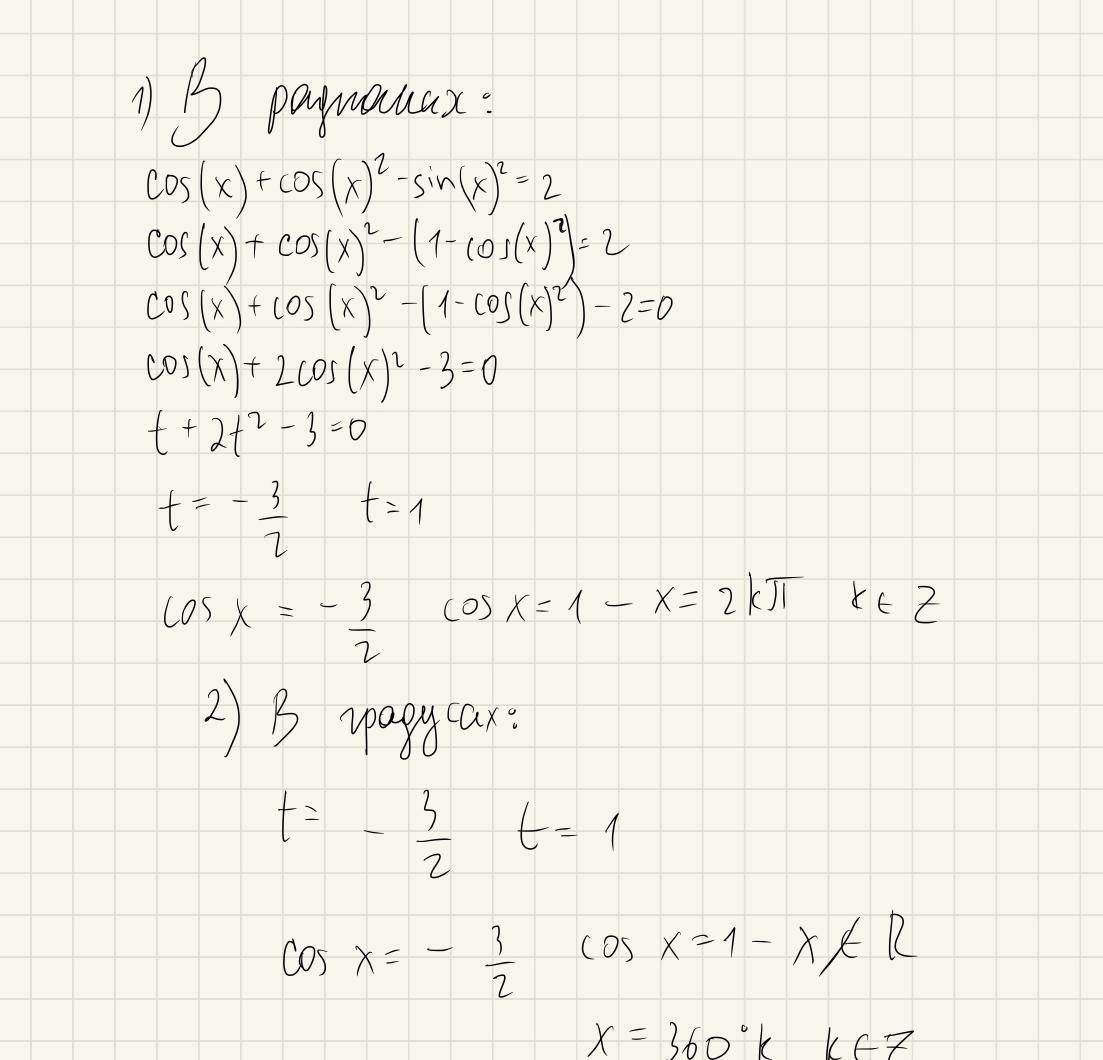 1) В радианах:
cos(x) + cos(x)² - sin(x)² = 2
cos(x) + cos(x)² - (1 - cos(x)²) = 2
cos(x) + cos(x)² - (1 - cos(x)²) - 2 = 0
cos(x) + 2cos(x)² - 3 = 0
t + 2t² - 3 = 0
t = - 3/2 t = 1
cos x = - 3/2 cos x = 1 - x = 2kπ k ∈ Z
2) В градусах:
t = - 3/2 t = 1
cos x = - 3/2 cos x = 1 - x ∉ R
x = 360°k k ∈ Z